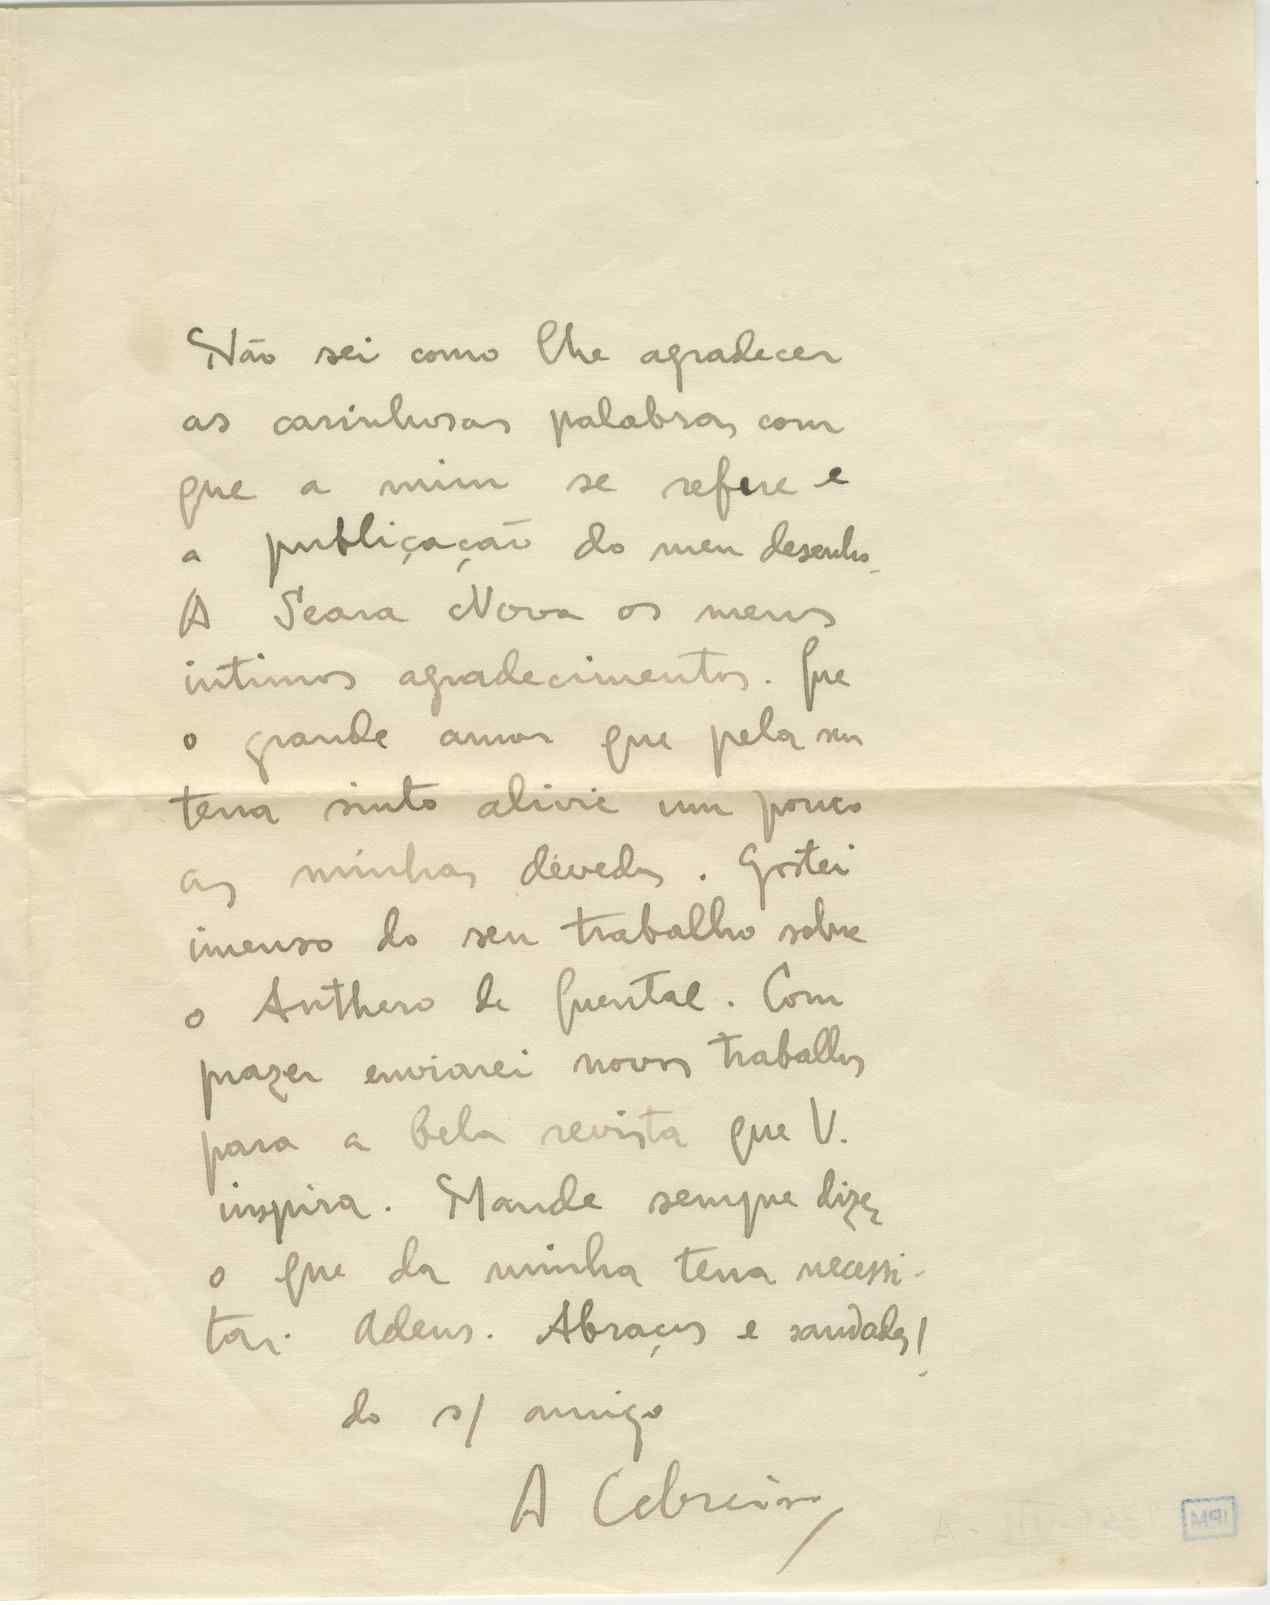 Não sei como lhe agradecer
as carinhosas palabras com
que a mim se refere e
a publiçação do meu desenho.
A Seara Nova os meus
intimos agradecimentos. Que
o grande amor que pela sua
terra sinto alivie um pouco
as minhas dévedas. Gostei
imenso do seu trabalho sobre
o Anthero de Quental. Com
prazer enviarei novos traballos
para a bela revista que V.
inspira. Mande sempre dizer
o que da minha terra necessi-
tar. Adeus. Abraços e saudades!
do s/ amigo
A Cebreiro
IPM